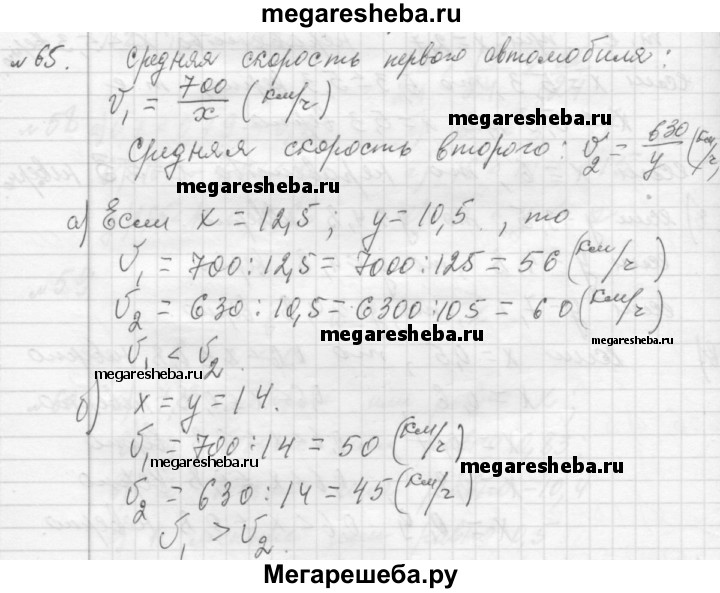 megaresheba.ru
№ 65. Средняя скорость первого автомобиля:
v₁ = 700/x (км/ч)
megaresheba.ru
Средняя скорость второго: v₂ = 630/y (км/ч)
megaresheba.ru
а) Если x = 12,5; y = 10,5, то
v₁ = 700:12,5 = 7000:125 = 56 (км/ч)
v₂ = 630:10,5 = 6300:105 = 60 (км/ч)
megaresheba.ru
megaresheba.ru
v₁ < v₂.
megaresheba.ru
б) x = y = 14.
v₁ = 700:14 = 50 (км/ч)
megaresheba.ru
megaresheba.ru
v₂ = 630:14 = 45 (км/ч)
v₁ > v₂.
Мегарешеба.ру